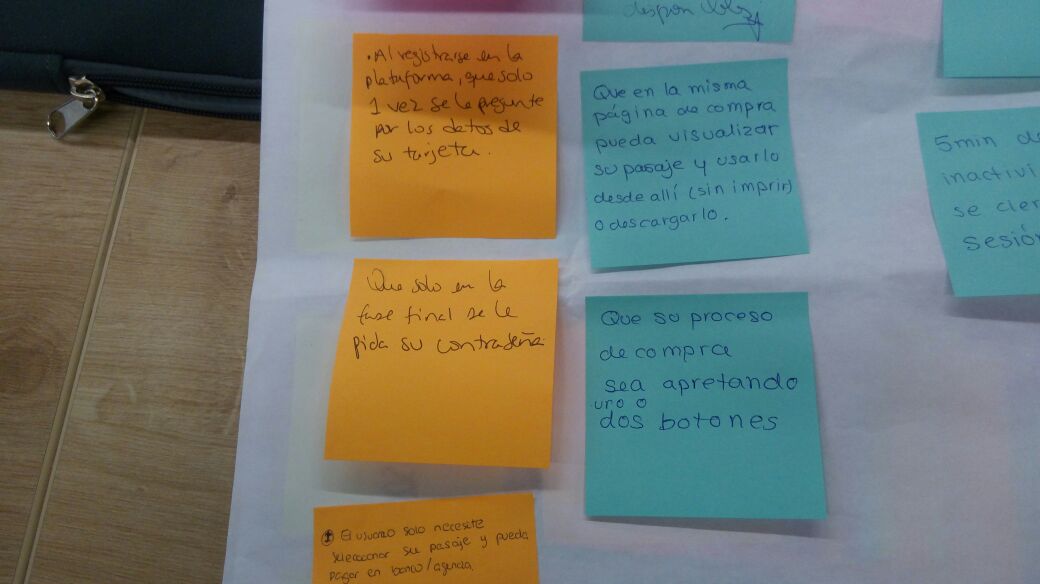 disponible
• Al registrarse en la
plataforma, que solo
1 vez se le pregunte
por los datos de
su tarjeta.
Que en la misma
página de compra
pueda visualizar
su pasaje y usarlo
desde allí (sin imprir)
o descargarlo.
5min de
inactivi
se cier
sesión
Que solo en la
fase final se le
pida su contraseña.
Que su proceso
de compra
sea apretando
uno o
dos botones
El usuario solo necesite
seleccionar su pasaje y pueda
pagar en banco/agencia.